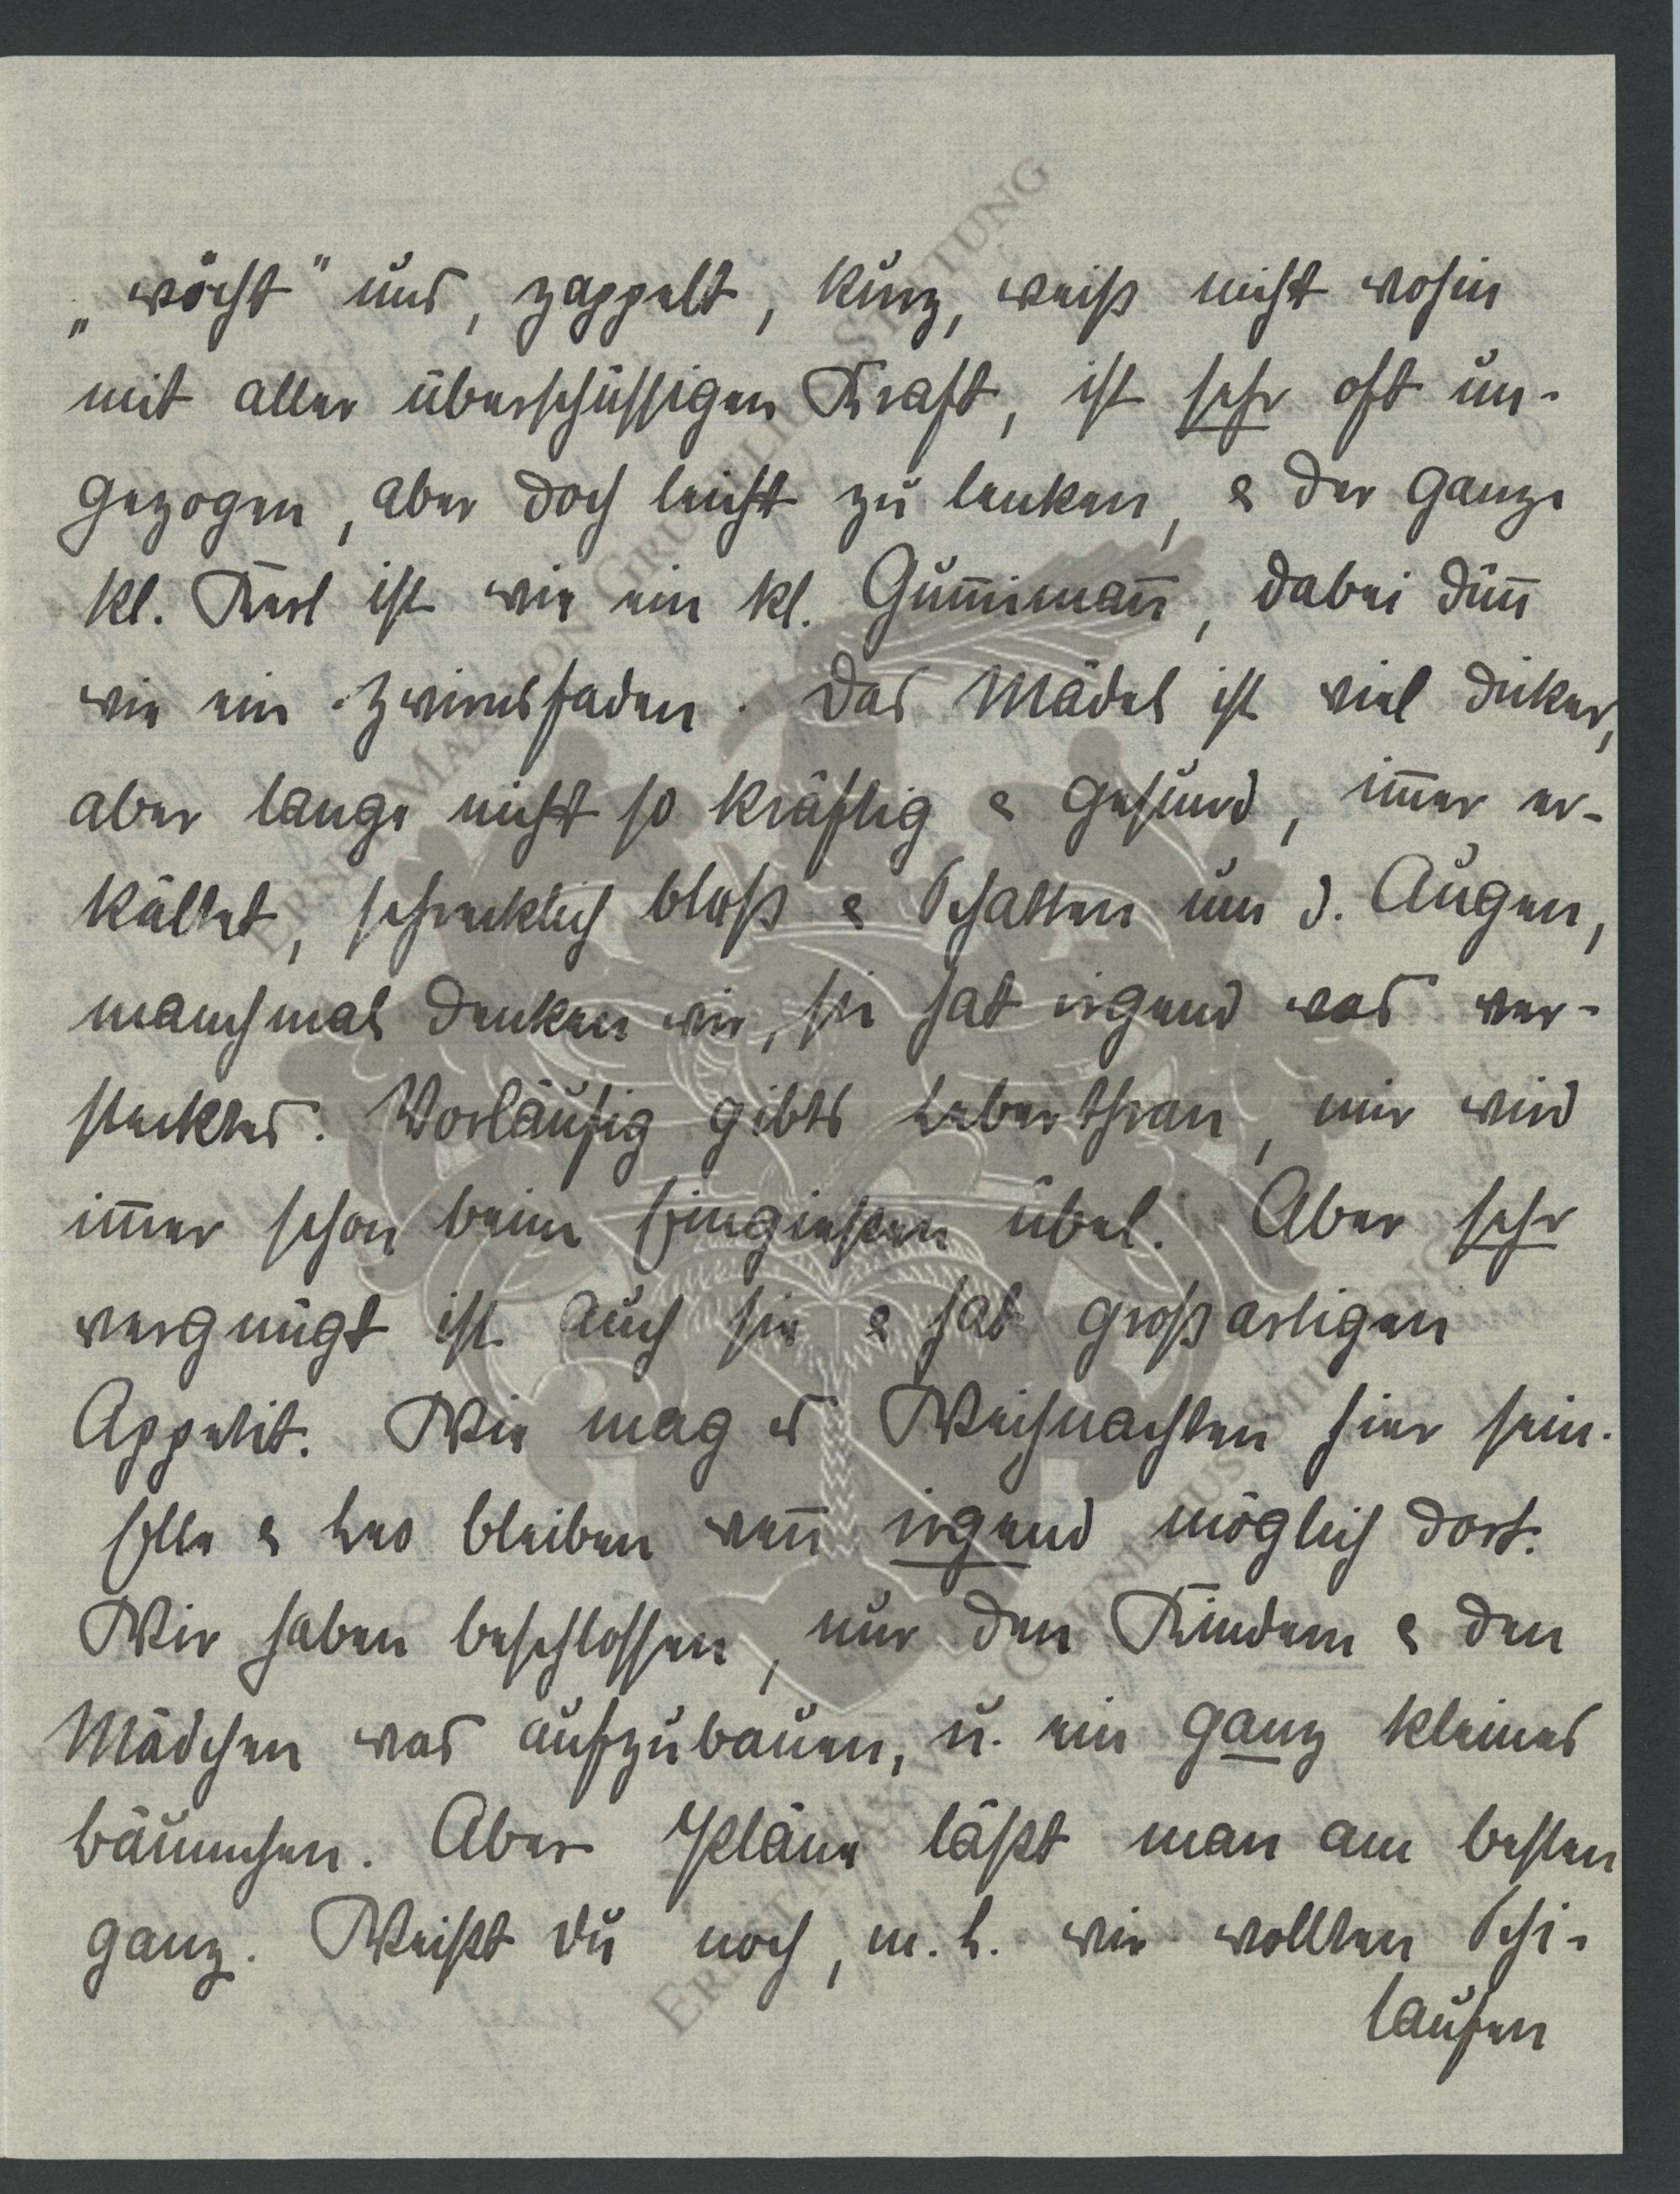 „wöcht" und, zappelt, kurz, weiß nicht wohin
mit aller überschüssigen Kraft, ist sehr oft un-
gezogen, aber doch leicht zu lenken, & der ganze
kl. Kerl ist wie ein kl. Gum̅iman̅, dabei dün̅
wie ein Zwirnsfaden. Das Mädel ist viel dicker,
aber lange nicht so kräftig & gesund, im̅er er-
kältet, schrecklich blaß & Schatten um d. Augen,
manchmal denken wir, sie hat irgend was ver-
stecktes. Vorläufig gibts Leberthran, mir wird
im̅er schon beim Eingießen übel. Aber sehr
vergnügt ist auch sie & hat großartigen
Appetit. Wie mag es Weihnachten hier sein.
Elle & Leo bleiben wen̅ irgend möglich dort.
Wir haben beschlossen, nur den Kindern & den
Mädchen was aufzubauen, u. ein ganz kleines
bäumchen. Aber Pläne läßt man am besten
ganz. Weißt du noch, m. L. wir wollten Schi-
laufen
ERNST MAXIMILIAN GRUNELIUS STIFTUNG